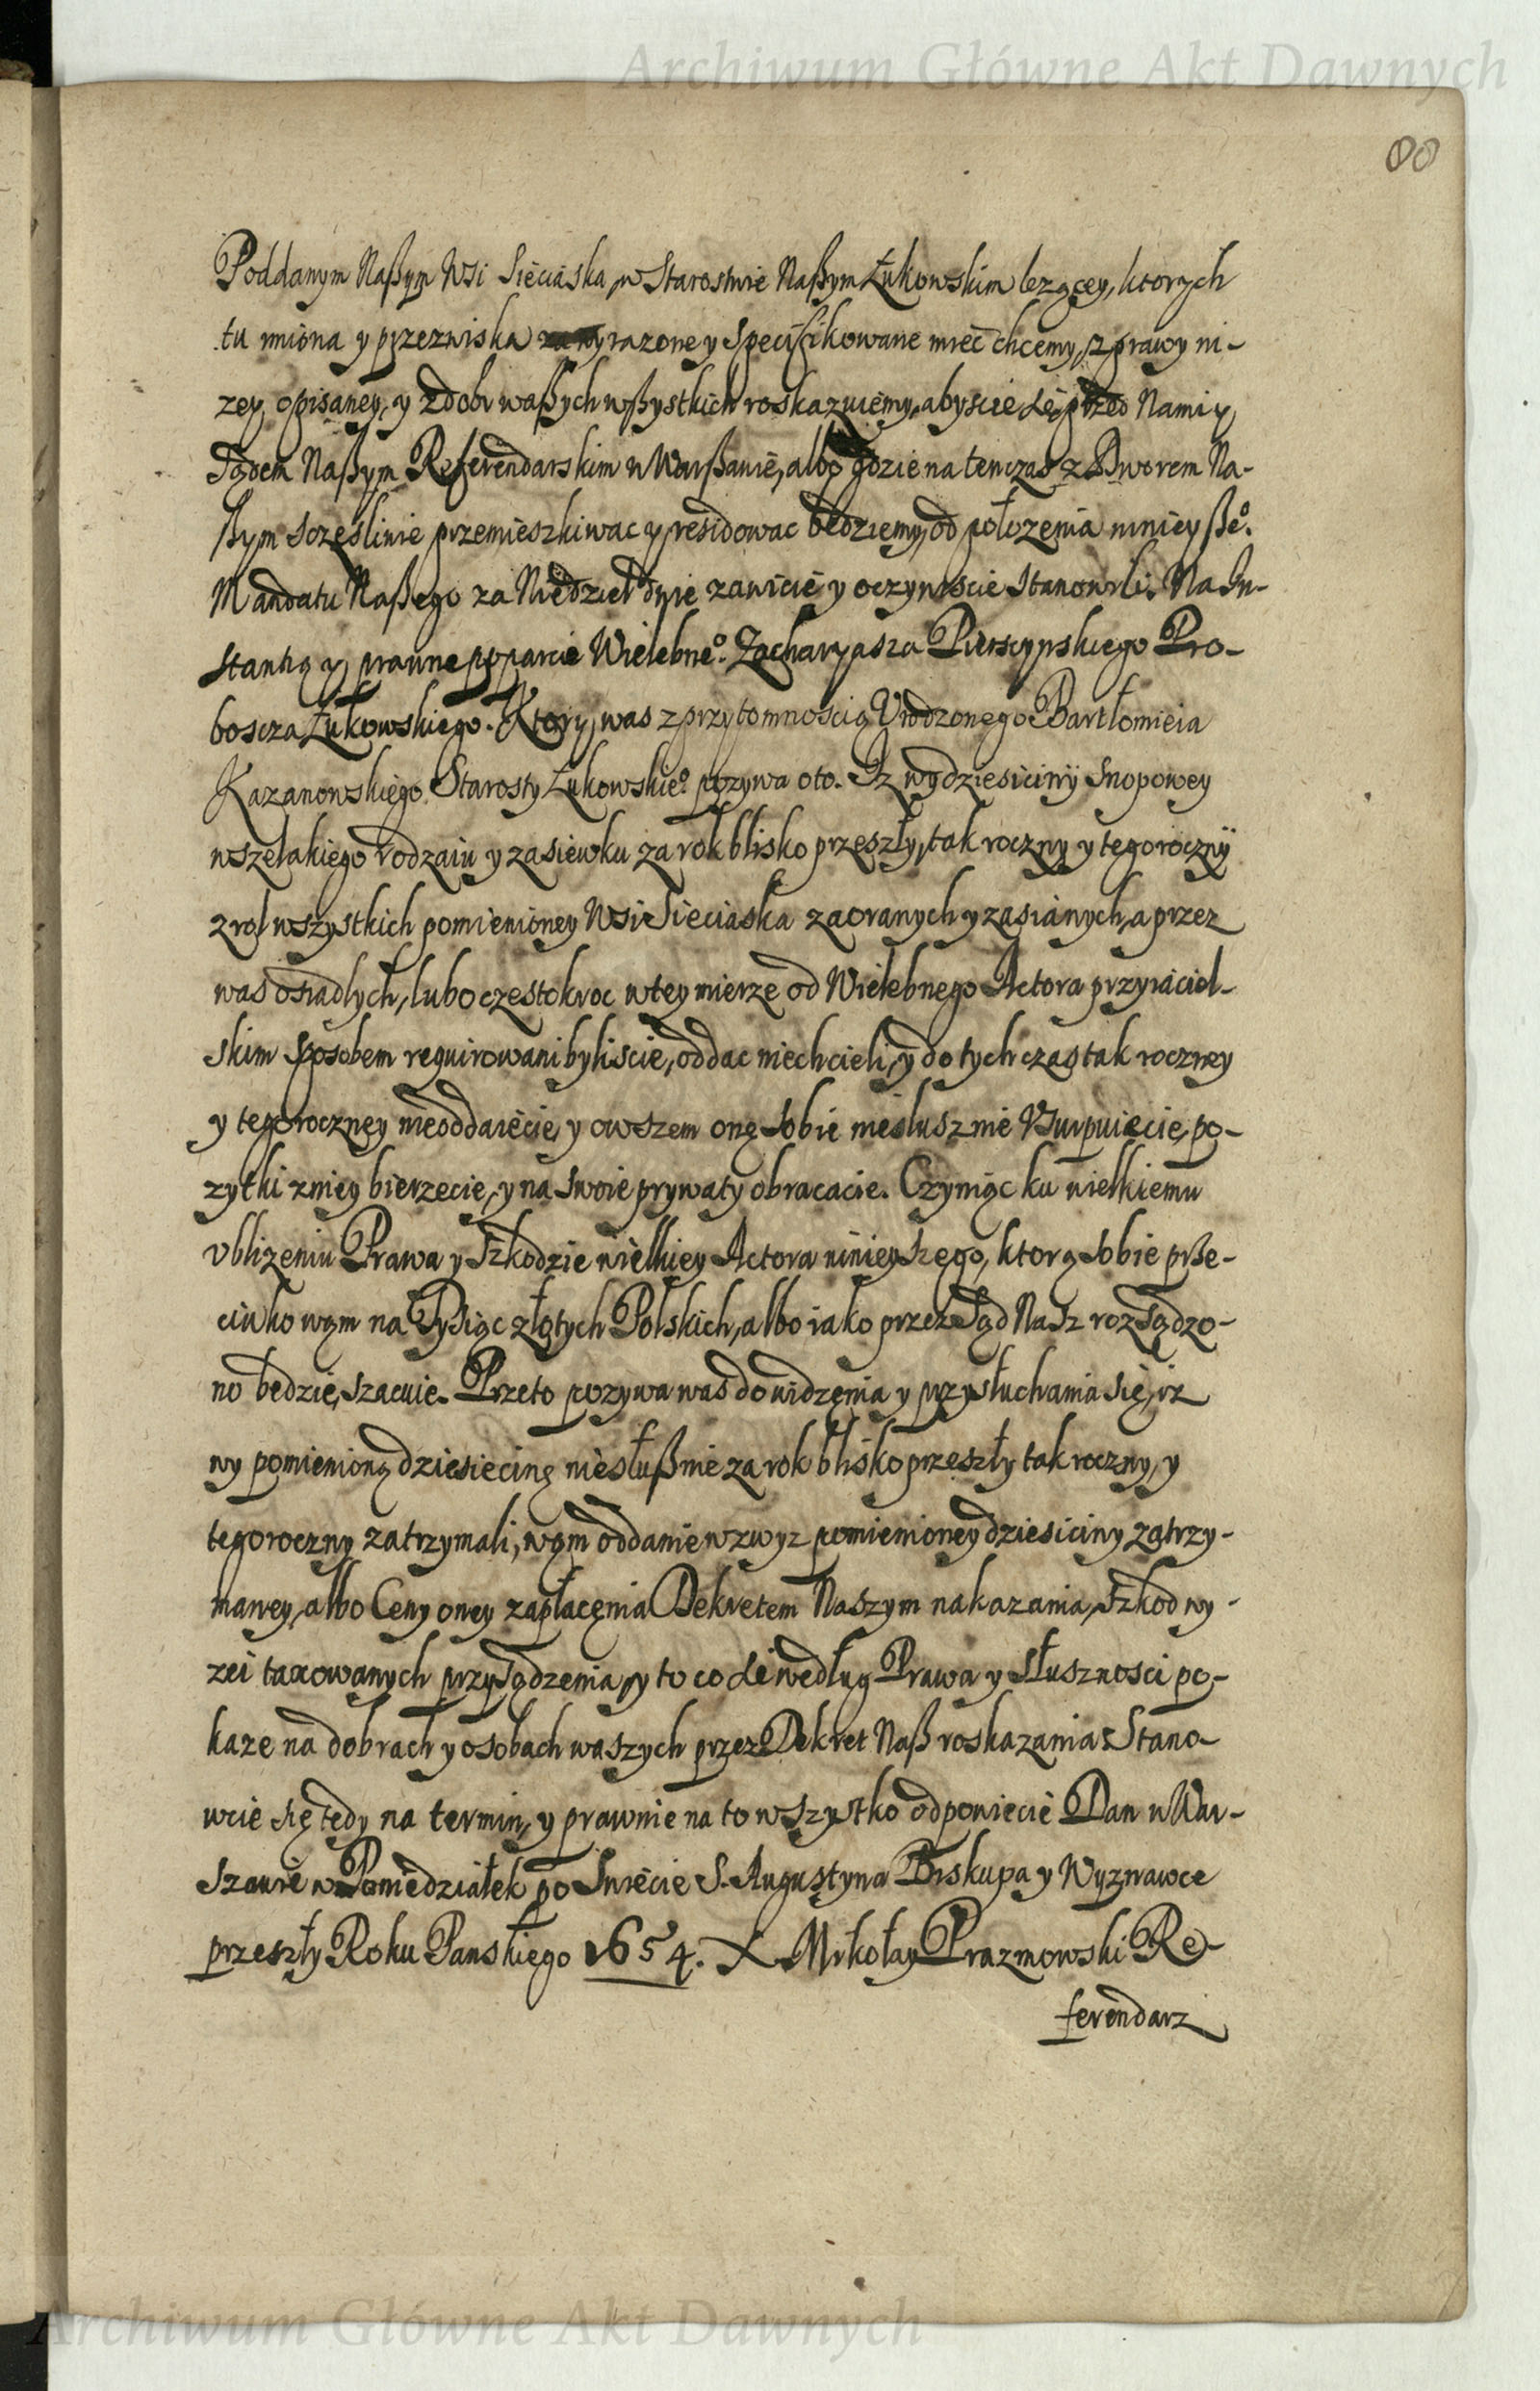 Archiwum Główne Akt Dawnych
80
Poddanym Naßym Wsi Sieciaska, w Starostwie Naßym Łukowskim lezącey, ktorych
tu imiona y przezwiska wyrazone y specifikowane miec chcemy, z prawy ni-
zey opisaney, y z dobr waßych wßystkich roskazuiemy, abyscie się przed Nami y
Sądem Naßym Referendarskim w Warßawie, albo gdzie na tenczas z Dworem Na-
ßym sczęsliwie przemieszkiwac y residowac będziemy, od połozenia ninieyßeº.
Mandatu Naßego za Niedziel dwie zawicie y oczywiscie Stanowili. Na In-
stantią y prawne poparcie Wielebneº. Zacharyasza Pierscynskiego Pro-
boscza Łukowskiego. Ktory was z przytomnoscią Urodzonego Bartłomieia
Kazanowskiego Starosty Łukowskieº pozywa oto. Iz wy dziesiciny Snopowey
wszelakiego rodzaiu y zasiewku za rok blisko przeszły, tak roczny y tegoroczny
z rol wszystkich pomienioney Wsi Sieciaska zaoranych y zasianych, a przez
was osiadlych, lubo częstokroc w tey mierze od Wielebnego Actora przyiaciel-
skim sposobem requirowani byliscie, oddac niechcieli, y do tych czas tak roczney
y tegoroczney nieoddaiecie, y owszem onę sobie niesłusznie Vsurpuiecie, po-
zytki z niey bierzecie, y na swoie prywaty obracacie. Czyniąc ku wielkiemu
vblizeniu Prawa y Szkodzie wielkiey Actora ninieyszego, ktorą sobie prze-
ciwko wąm na Tysiąc złotych Polskich, albo iako przez Sąd Nasz rozsądzo-
no będzie, szacuie. Przeto pozywa was do widzenia y przysłuchania się, iz
wy pomienioną dziesiecinę niesłußnie za rok blisko przeszły tak roczny, y
tegoroczny zatrzymali, wąm oddanie wzwyz pomienioney dziesiciny zatrzy-
maney, albo Ceny oney zapłacęnia Dekretem Naszym nakazania, Szkod wy-
zei taxowanych przysądzenia, y to co się według Prawa y słusznosci po-
kaze na dobrach y osobach waszych przez Dekret Naß roskazania Stano-
wcie się tedy na termin, y prawnie na to wszystko odpowiecie Dan w War-
szawie w Poniedziałek po Swiecie S. Augustyna Biskupa y Wyznawce
przeszły Roku Panskiego 1654. X Mikołay Prazmowski Re-
ferendarz
Archiwum Główne Akt Dawnych